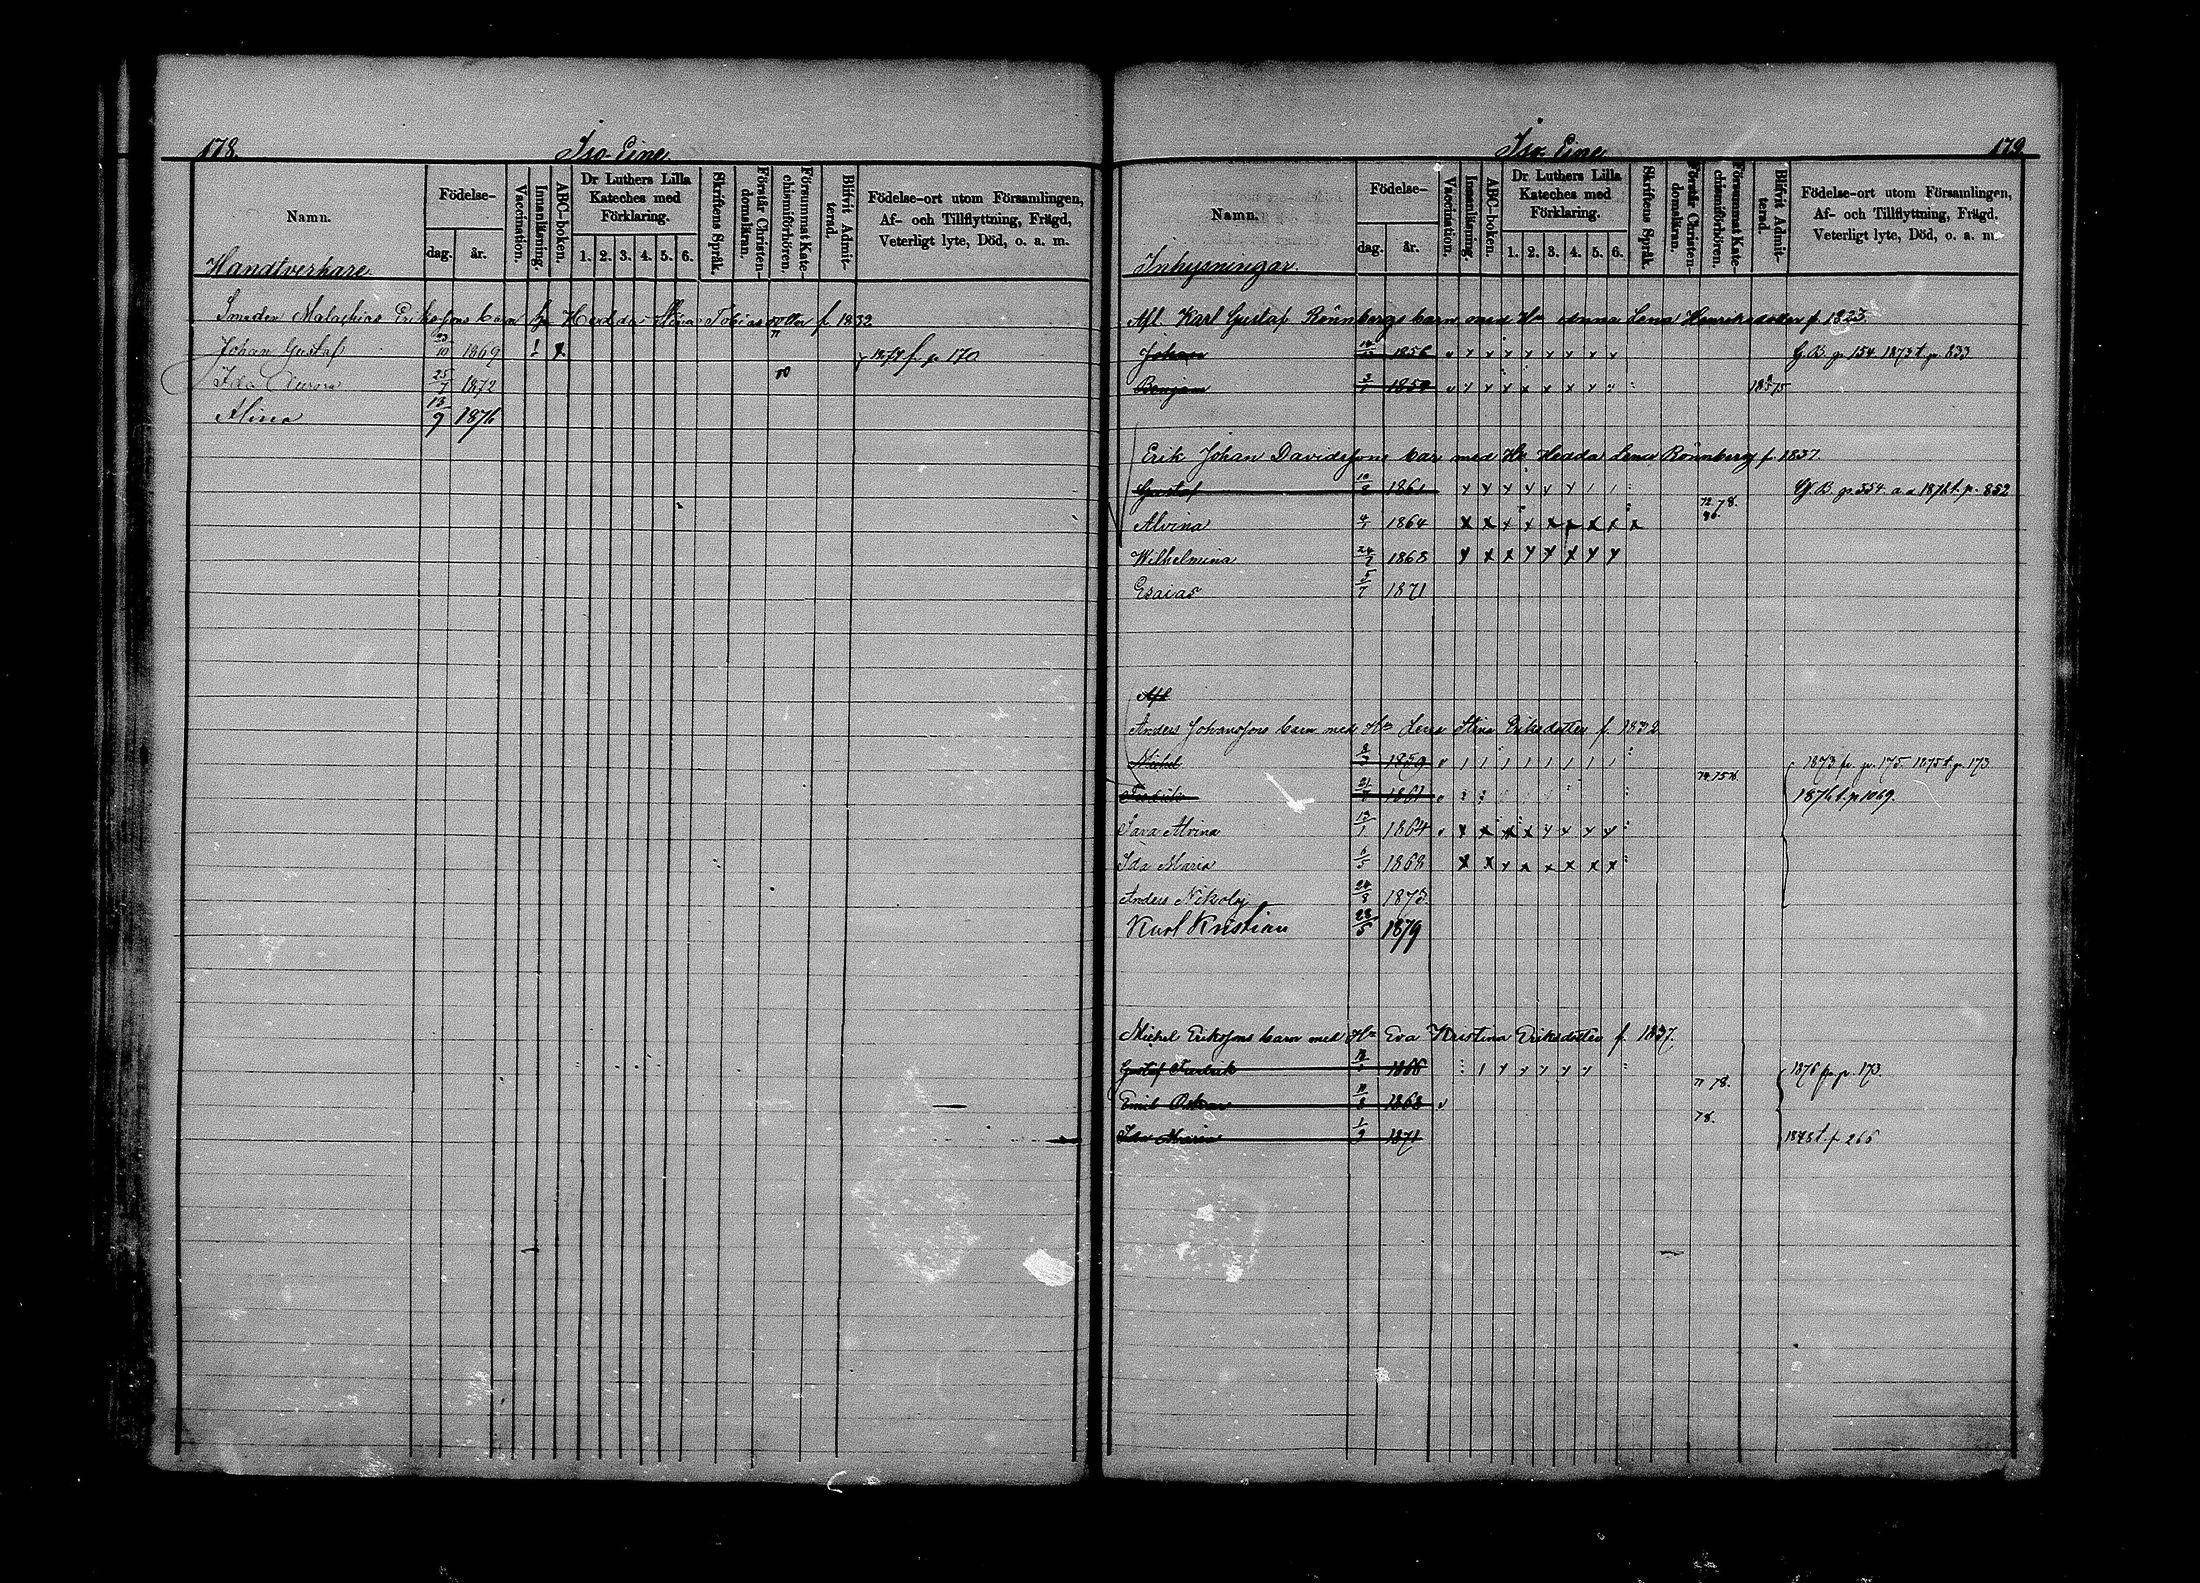 178.
Iso-Eine
Namn.
Födelse-
dag. år.
Vaccination.
Innanläsning.
ABC-boken.
Dr Luthers Lilla Kateches med Förklaring.
1. 2. 3. 4. 5. 6.
Skriftens Språk.
Förstår Christen-domsläran.
Försummat Kate-chismiförhören.
Blifvit Admit-terad.
Födelse-ort utom Församlingen,
Af- och Tillflyttning, Frägd,
Veterligt lyte, Död, o. a. m.
Handtverkare.
Smeden Malachias Eriksons barn Hedda Stina Tobiasdotter f. 1832
Johan Gustaf 1869 f. p. 170
Ida Aurora 25/7 1872
Alina 13/9 1876
Iso-Eine
179
Namn.
Födelse-
dag. år.
Vaccination.
Innanläsning.
ABC-boken.
Dr Luthers Lilla Kateches med Förklaring.
1. 2. 3. 4. 5. 6.
Skriftens Språk.
Förstår Christen-domsläran.
Försummat Kate-chismiförhören.
Blifvit Admit-terad.
Födelse-ort utom Församlingen,
Af- och Tillflyttning, Frägd,
Veterligt lyte, Död, o. a. m.
Inhysningar.
Afl. Karl Gustaf Rönnbergs barn med Hu Anna Lena Henriksdotter f. 1823.
Johan 1856 G. B. p. 154. 1873 t. p. 833
Benjam
Erik Johan Davidssons barn med Hu Hedda Lena Rönnberg f. 1837.
Gustaf 1861 G. B. p. 554. a. a. 1876 t. p. 852
Alvina 4/1 1864 78.
Wilhelmina 24/2 1868
Esaias 5/7 1871
Afl
Anders Johanssons barn med Hu Lena Stina Eriksdotter f. 1832
Michel 1859 1873 fr. p. 175. 1875 t. p. 173
Fredrik 1861 1876 t. p. 1069.
Sara Alvina 13/1 1864
Ida Maria 6/5 1868
Anders Nikolaj 24/8 1873
Karl Kristian 28/5 1879
Michel Erikssons barn med Hu Eva Kristina Eriksdotter f. 1837.
Gustaf Fredrik 1866 1876 fr. p. 173.
77 78.
Emil Oskar 11/8 1868
78.
Ida Maria 1/9 1871 1878 t. p. 266